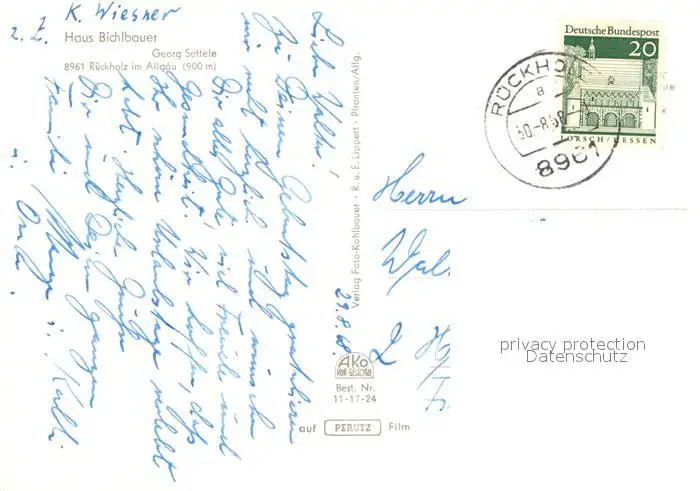 K. Wiesner
z. Z. Haus Bichlbauer
Georg Settele
8961 Rückholz im Allgäu (900 m)
Lieber Walter!
Zu Deinem Geburtstag gratulieren
wir recht herzlich und wünschen
Dir alles Gute, viel Freude und
Gesundheit. Wir hoffen, daß
Ihr schöne Urlaubstage verlebt
habt. Herzliche Grüße
Dir und Deiner ganzen
Familie
u.
Verlag Foto-Kohlbauer · R. u. E. Lippert · Pfronten/Allg.
29.8.68
AKO
Best. Nr.
11-17-24
auf PERUTZ Film
Deutsche Bundespost
20
LORSCH/HESSEN
RÜCKHO
a
30.-8.68
8961
Herrn
Wal
2 H
privacy protection
Datenschutz